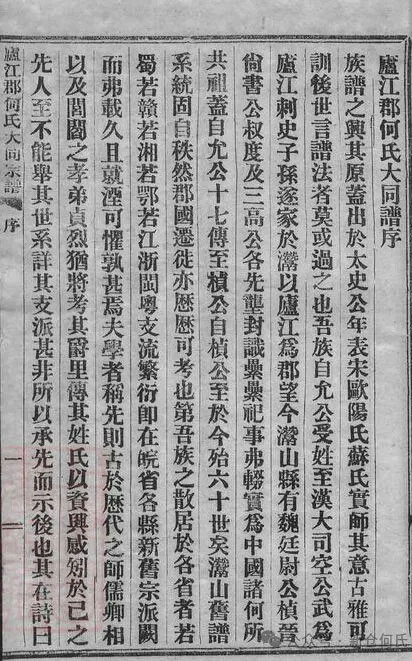 廬江郡何氏大同譜序
族譜之興其原蓋出於太史公年表宋歐陽氏蘇氏實師其意古雅可
訓後世言譜法者莫或過之也吾族自允公受姓至漢大司空公武爲
廬江刺史子孫遂家於灊以廬江爲郡望今灊山縣有魏廷尉公楨晉
尙書公叔度及三高公各先壟封識纍纍祀事弗輟實爲中國諸何所
共祖蓋自允公十七傳至楨公自楨公至於今殆六十世矣灊山舊譜
系統固自秩然郡國遷徙亦歷歷可考也第吾族之散居於各省者若
蜀若贛若湘若鄂若江浙閩粤支流繁衍卽在皖省各縣新舊宗派闕
而弗載久且就湮可懼孰甚焉夫學者稱先則古於歷代之師儒卿相
以及閭閻之孝弟貞烈猶將考其爵里傳其姓氏以資興感矧於己之
先人至不能舉其世系詳其支派甚非所以承先而示後也其在詩曰
廬江郡何氏大同宗譜
序
一
公众号：何氏